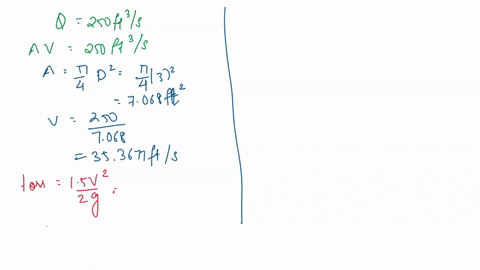 Q = 250 ft³/s
AV = 250 ft³/s
A = π/4 D² = π/4 (3)²
= 7.068 ft²
V = 250/7.068
= 35.3677 ft/s
loss = 1.5V²/2g =